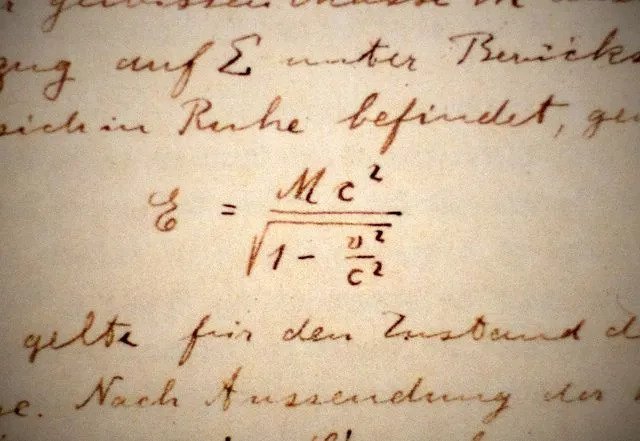 gewissen Masse M
auf Σ unter
sich in Ruhe befindet,
E = M c² / √(1 - v²/c²)
gelte für den Zustand
Nach Aussendung der